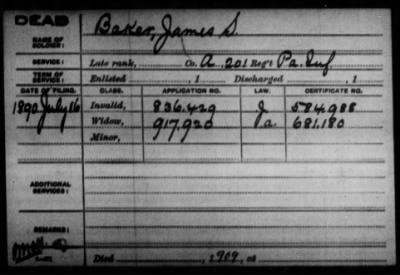 DEAD
NAME OF SOLDIER: Baker, James S.
SERVICE: Late rank, Co. A, 201 Reg't Pa. Inf.
TERM OF SERVICE: Enlisted , 1 Discharged , 1
DATE OF FILING. CLASS. APPLICATION NO. LAW. CERTIFICATE NO.
1890 July 16 Invalid, 836.429 J 584.988
Widow, 917.920 Ja. 681.180
Minor,
ADDITIONAL SERVICES:
REMARKS:
Died , 1909, at